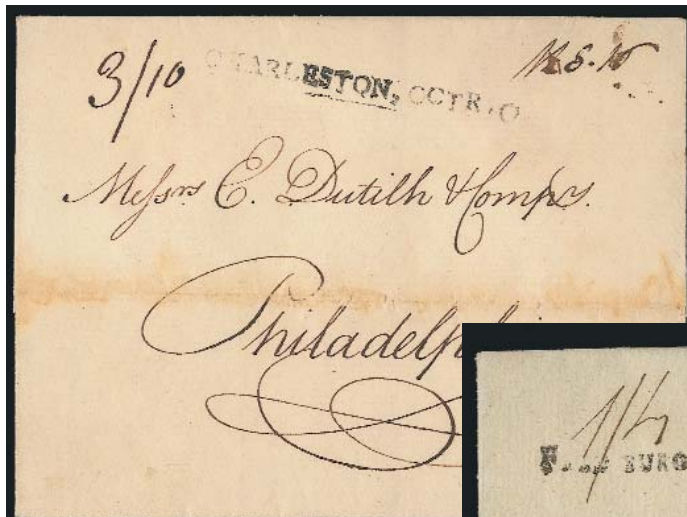 3/10
CHARLESTON, OCTR. O
Messrs E. Dutilh & Compy.
Philadelph
1/4
BURG